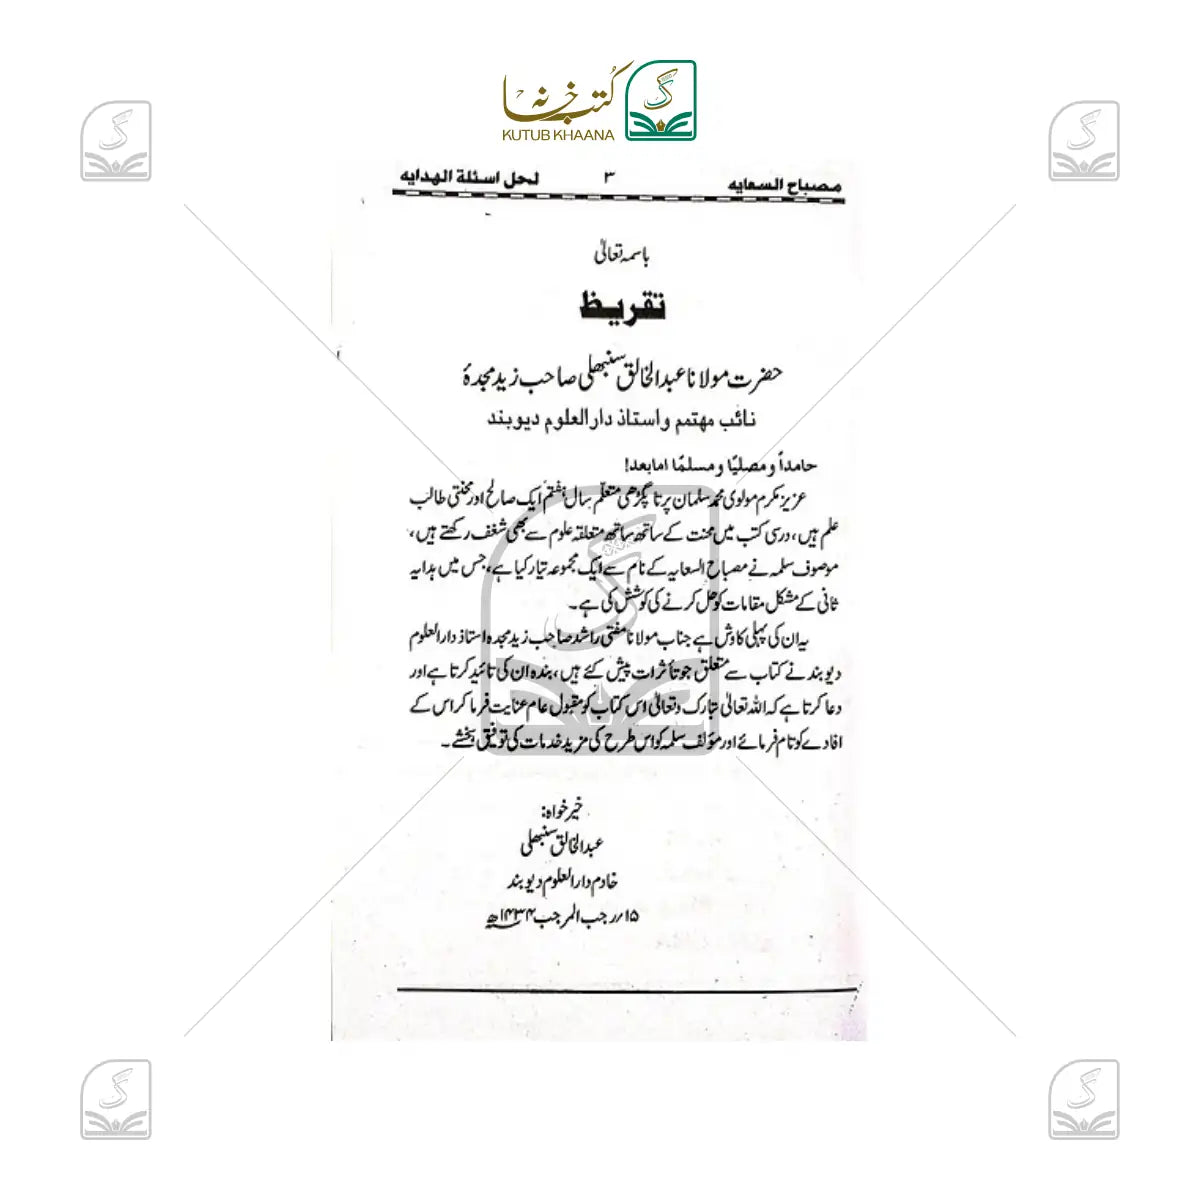 کتب خانہ
KUTUB KHAANA
مصباح السعایه ۳ لحل اسئلة الهدایه
باسمہ تعالیٰ
تقریظ
حضرت مولانا عبدالخالق سنبھلی صاحب زید مجدہٗ
نائب مہتمم و استاذ دارالعلوم دیوبند
حامداً و مصلیًا و مسلمًا امابعد!
عزیز مکرم مولوی محمد سلمان پرتاپگڑھی متعلم سال ہفتم ایک صالح اور محنتی طالب
علم ہیں، درسی کتب میں محنت کے ساتھ ساتھ متعلقہ علوم سے بھی شغف رکھتے ہیں،
موصوف سلمہ نے مصباح السعایہ کے نام سے ایک مجموعہ تیار کیا ہے، جس میں ہدایہ
ثانی کے مشکل مقامات کو حل کرنے کی کوشش کی ہے۔
یہ ان کی پہلی کاوش ہے جناب مولانا مفتی راشد صاحب زید مجدہ استاذ دارالعلوم
دیوبند نے کتاب سے متعلق جو تأثرات پیش کئے ہیں، بندہ ان کی تائید کرتا ہے اور
دعا کرتا ہے کہ اللہ تعالیٰ تبارک وتعالیٰ اس کتاب کو مقبول عام عنایت فرما کر اس کے
افادے کو تام فرمائے اور مؤلف سلمہ کو اس طرح کی مزید خدمات کی توفیق بخشے۔
خیرخواہ:
عبدالخالق سنبھلی
خادم دارالعلوم دیوبند
۱۵/رجب المرجب ۱۴۳۴ھ